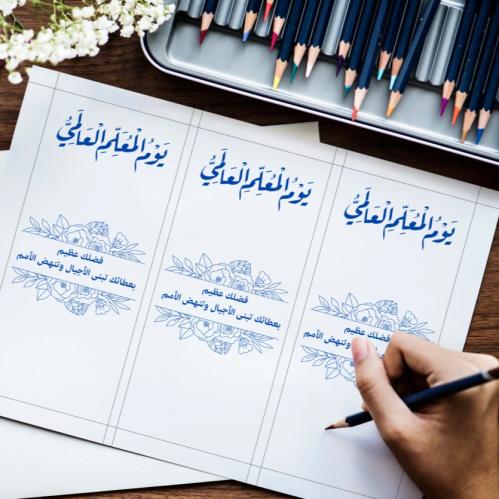 يَوْمُ الْمُعَلِّمِ الْعَالَمِيُّ
فضلك عظيم
بعطائك تبنى الأجيال وتنهض الأمم
يَوْمُ الْمُعَلِّمِ الْعَالَمِيُّ
فضلك عظيم
بعطائك تبنى الأجيال وتنهض الأمم
يَوْمُ الْمُعَلِّمِ الْعَالَمِيُّ
فضلك عظيم
بعطائك تبنى الأجيال وتنهض الأمم